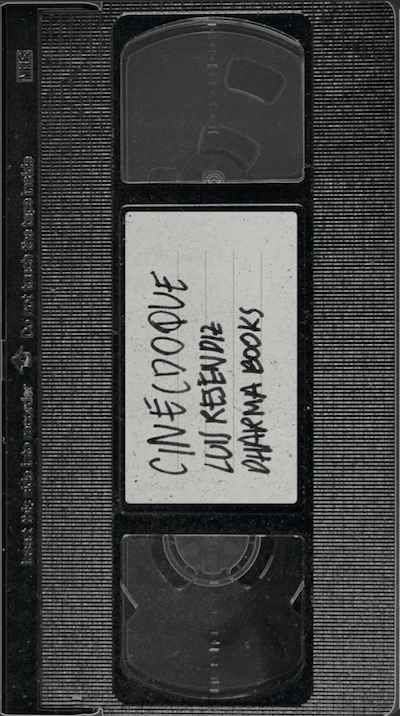 CINÉCDOQUE
LUIS RESÉNDIZ
DHARMA BOOKS
VHS
Do not touch the tape inside
Insert this side into recorder